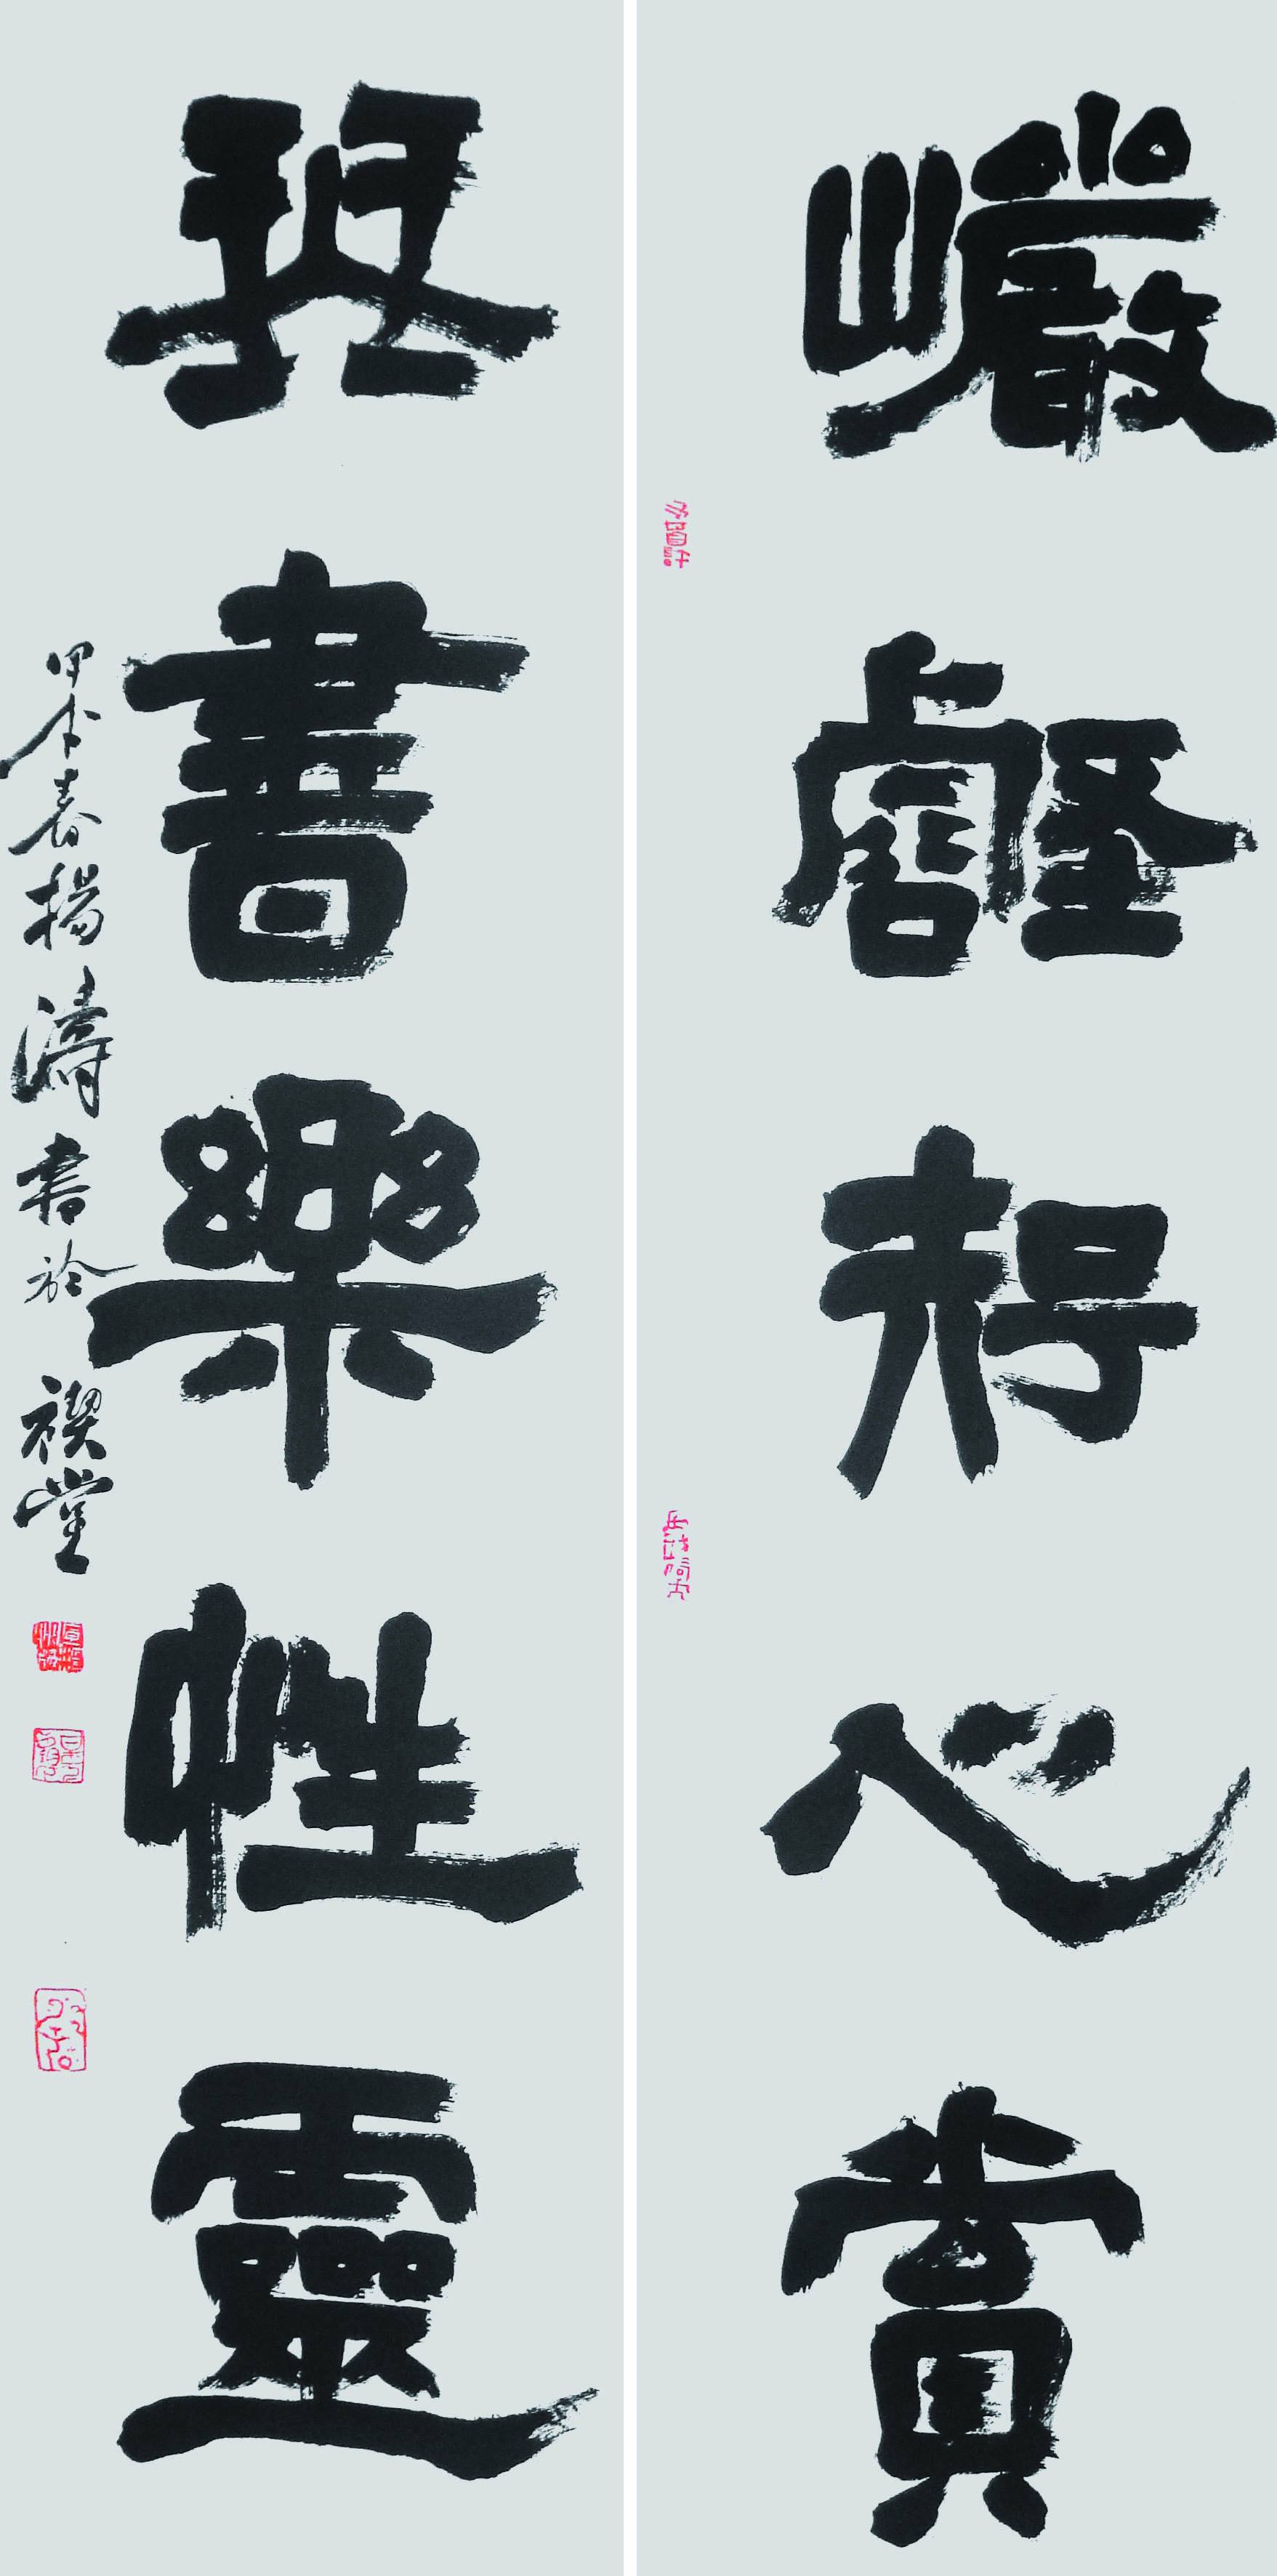 巖壑好心賞
琴書樂性靈
甲午春楊濤書於禊堂